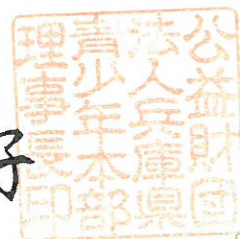 公益財団
法人兵庫県
青少年本部
理事長印
子